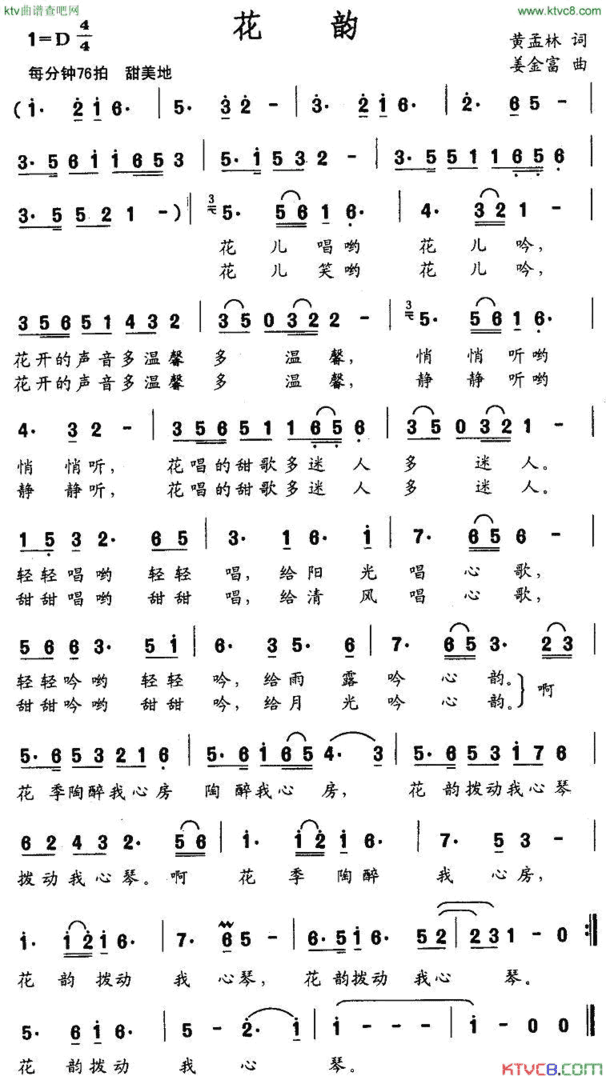 ktv曲谱查吧网
www.ktvc8.com
花 韵
1=D 4/4
黄孟林 词
姜金富 曲
每分钟76拍 甜美地
(i· 2i6· | 5· 32 - | 3· i26· | 2· 65 - |
3·561i653 | 5·i532 - | 3·5511656 |
3·5521 -) | 5· 5616· | 4· 321 - |
花 儿 唱哟 花 儿 吟,
花 儿 笑哟 花 儿 吟,
35651432 | 350322 - | 5· 5616· |
花开的声音多温馨 多 温 馨, 悄 悄 听 哟
花开的声音多温馨 多 温 馨, 静 静 听 哟
4· 32 - | 356511656 | 350321 - |
悄 悄 听, 花唱的甜歌多迷 人 多 迷 人。
静 静 听, 花唱的甜歌多迷 人 多 迷 人。
1532· 65 | 3· 16· i | 7· 656 - |
轻轻唱哟 轻轻 唱, 给阳 光 唱 心 歌,
甜甜唱哟 甜甜 唱, 给清 风 唱 心 歌,
5663· 5i | 6· 35· 6 | 7· 653· 23 |
轻轻吟哟 轻轻 吟, 给雨 露 吟 心 韵。 啊
甜甜吟哟 甜甜 吟, 给月 光 吟 心 韵。
5·653216 | 5·6i654·3 | 5·653i76 |
花 季陶醉我心房 陶 醉我心 房, 花 韵拨动我心琴
62432· 56 | i· i2i6· | 7· 53 - |
拨动我心琴。啊 花 季 陶醉 我 心房,
i· i2i6· | 7· 65 - | 6·5i6· 52 | 231 - 0 :|
花 韵 拨动 我 心琴, 花 韵拨动 我心 琴。
5· 6i6· | 5 - 2·i | i - - - | i - 0 0 ||
花 韵拨动 我 心 琴。
KTVC8.COM